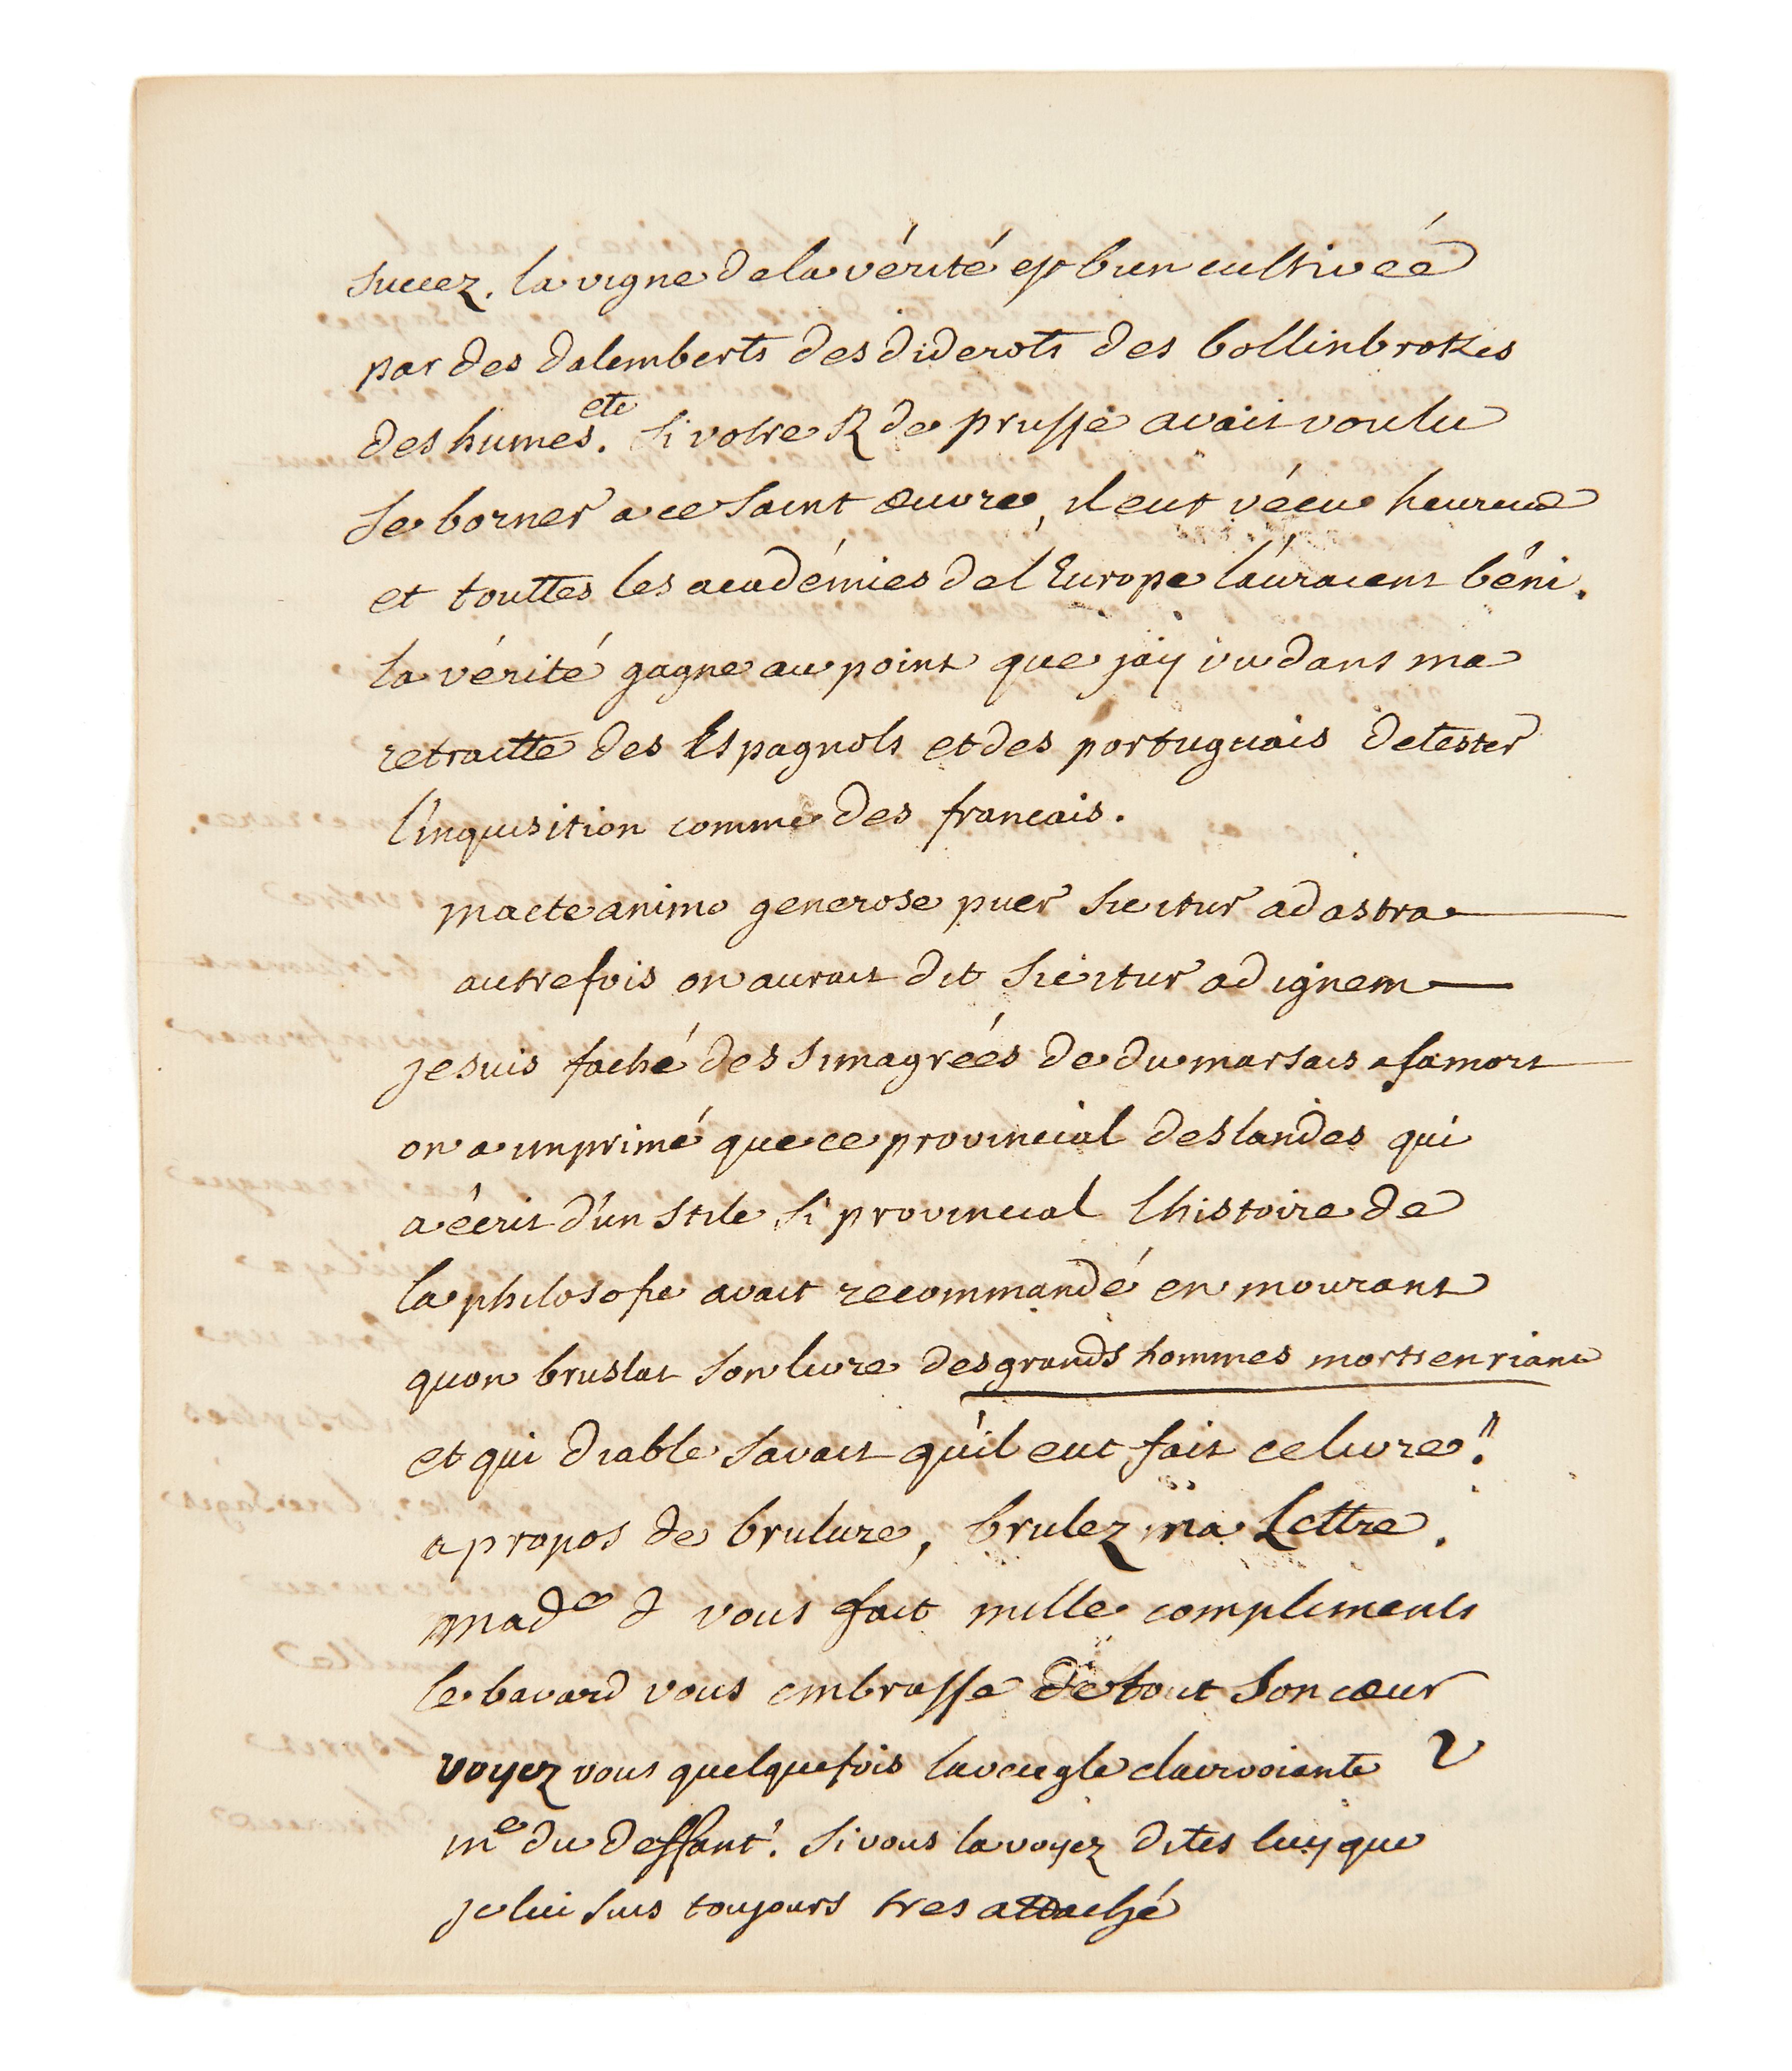 succez. la vigne de la vérité est bien cultiveé
par des dalemberts des diderots des bollinbrokes
des humes etc. si votre R de prusse avait voulu
se borner a ce saint œuvre, il eut vécu heureux
et touttes les académies de l'Europe l'auraient béni.
la vérité gagne au point que j'ay vu dans ma
retraitte des Espagnols et des portuguais detester
l'inquisition comme des francais.
macte animo generose puer sic itur ad astra
autrefois on aurait dit sic itur ad ignem
je suis faché des simagreés de du marsais a sa mort
on a imprimé que ce provincial deslandes qui
a écrit d'un stile si provincial l'histoire de
la philosofie avait recommandé en mourant
quon bruslat son livre des grands hommes morts en riant
et qui diable savait qu'il eut fait ce livre?
a propos de brulure, brulez ma Lettre.
made d vous fait mille compliments
le bavard vous embrasse de tout son cœur
voyez vous quelquefois laveugle clairvoiante
me du deffant? si vous la voyez dites luy que
je lui suis toujours tres attaché